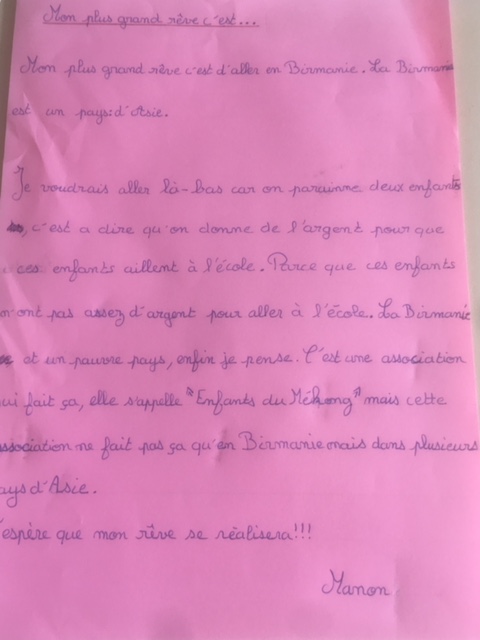 Mon plus grand rêve c'est...
Mon plus grand rêve c'est d'aller en Birmanie. La Birmanie
est un pays d'Asie.
Je voudrais aller là-bas car on parainne deux enfants
, c'est a dire qu'on donne de l'argent pour que
ces enfants aillent à l'école. Parce que ces enfants
n'ont pas assez d'argent pour aller à l'école. La Birmanie
et un pauvre pays, enfin je pense. C'est une association
ui fait ça, elle s'appelle "Enfants du Mékong" mais cette
association ne fait pas ça qu'en Birmanie mais dans plusieurs
ays d'Asie.
'espère que mon rêve se réalisera!!!
Manon